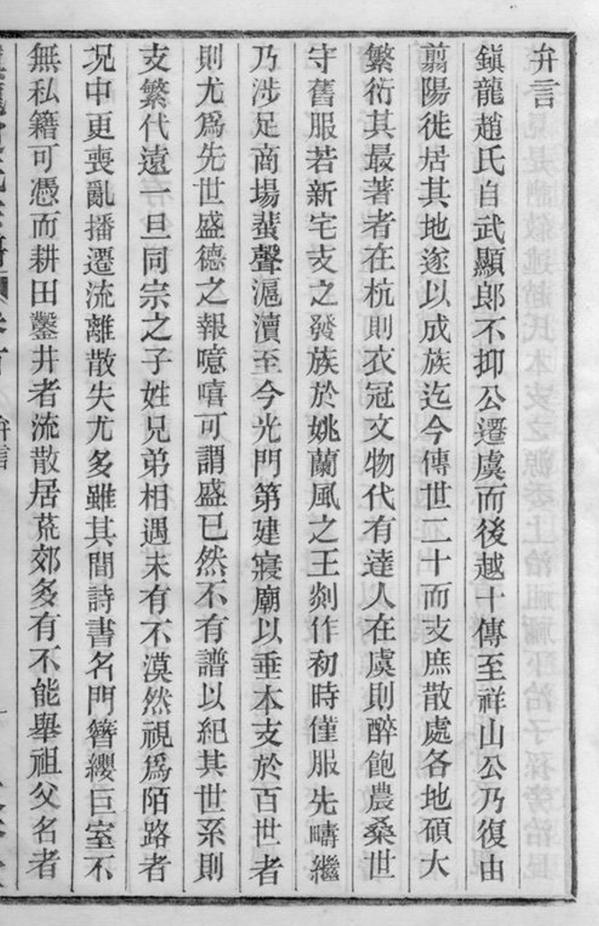 弁言
鎭龍趙氏自武顯郎不抑公遷虞而後越十傳至祥山公乃復由
翦陽徙居其地遂以成族迄今傳世二十而支庶散處各地碩大
繁衍其最著者在杭則衣冠文物代有達人在虞則醉飽農桑世
守舊服若新宅支之發族於姚蘭風之王剡作初時僅服先疇繼
乃涉足商場蜚聲滬瀆至今光門第建寢廟以垂本支於百世者
則尤爲先世盛德之報噫嘻可謂盛已然不有譜以紀其世系則
支繁代遠一旦同宗之子姓兄弟相遇未有不漠然視爲陌路者
况中更喪亂播遷流離散失尤多雖其間詩書名門簪纓巨室不
無私籍可憑而耕田鑿井者流散居荒郊多有不能舉祖父名者
弁言